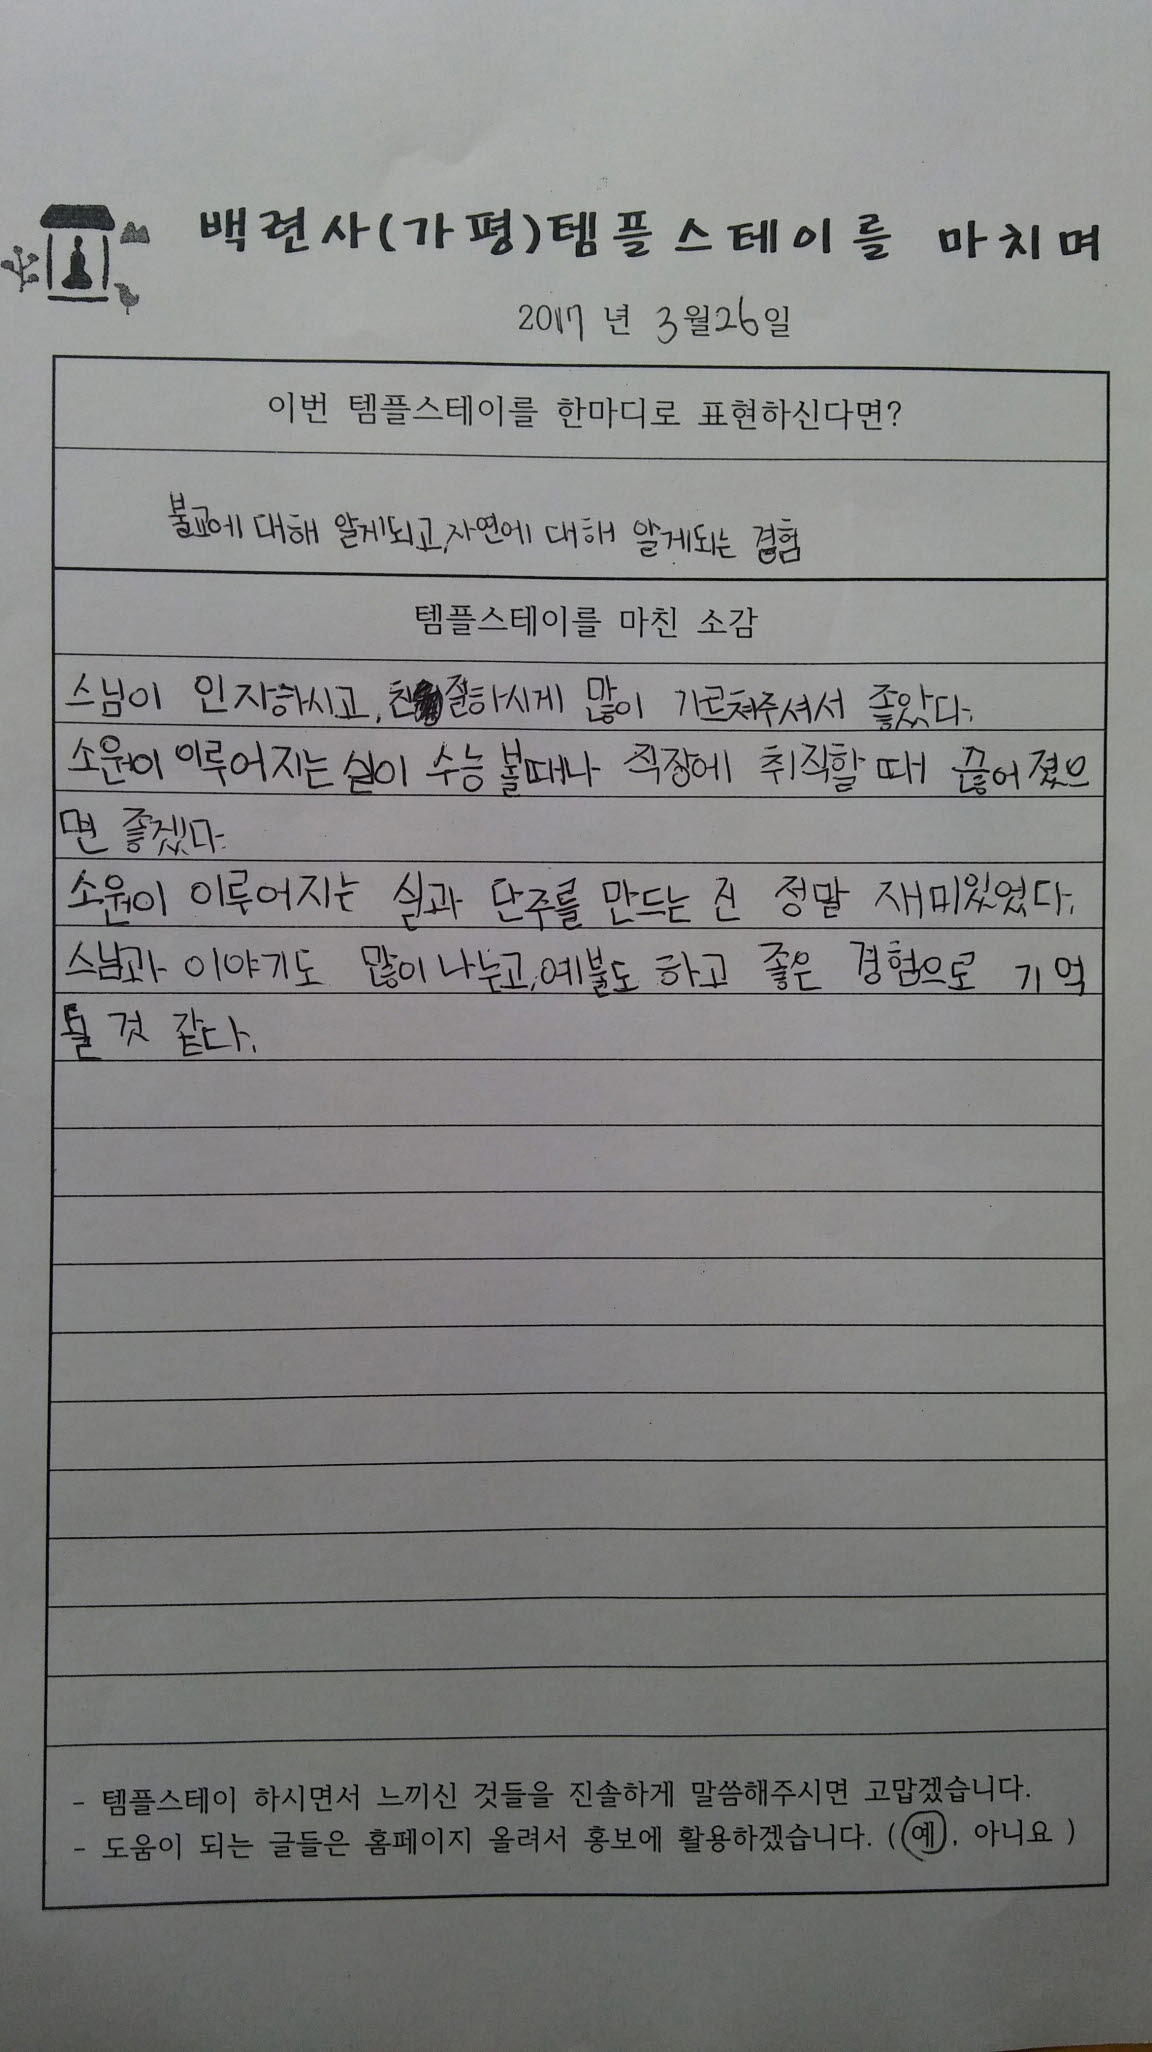 백련사(가평)템플스테이를 마치며
2017 년 3월26일
이번 템플스테이를 한마디로 표현하신다면?
불교에 대해 알게되고, 자연에 대해 알게되는 경험
템플스테이를 마친 소감
스님이 인자하시고, 친절하시게 많이 가르쳐주셔서 좋았다.
소원이 이루어지는 실이 수능 볼때나 직장에 취직할 때 끊어졌으
면 좋겠다.
소원이 이루어지는 실과 단주를 만드는 건 정말 재미있었다.
스님과 이야기도 많이 나눈고, 예불도 하고 좋은 경험으로 기억
될 것 같다.
- 템플스테이 하시면서 느끼신 것들을 진솔하게 말씀해주시면 고맙겠습니다.
- 도움이 되는 글들은 홈페이지 올려서 홍보에 활용하겠습니다. ( 예, 아니요 )